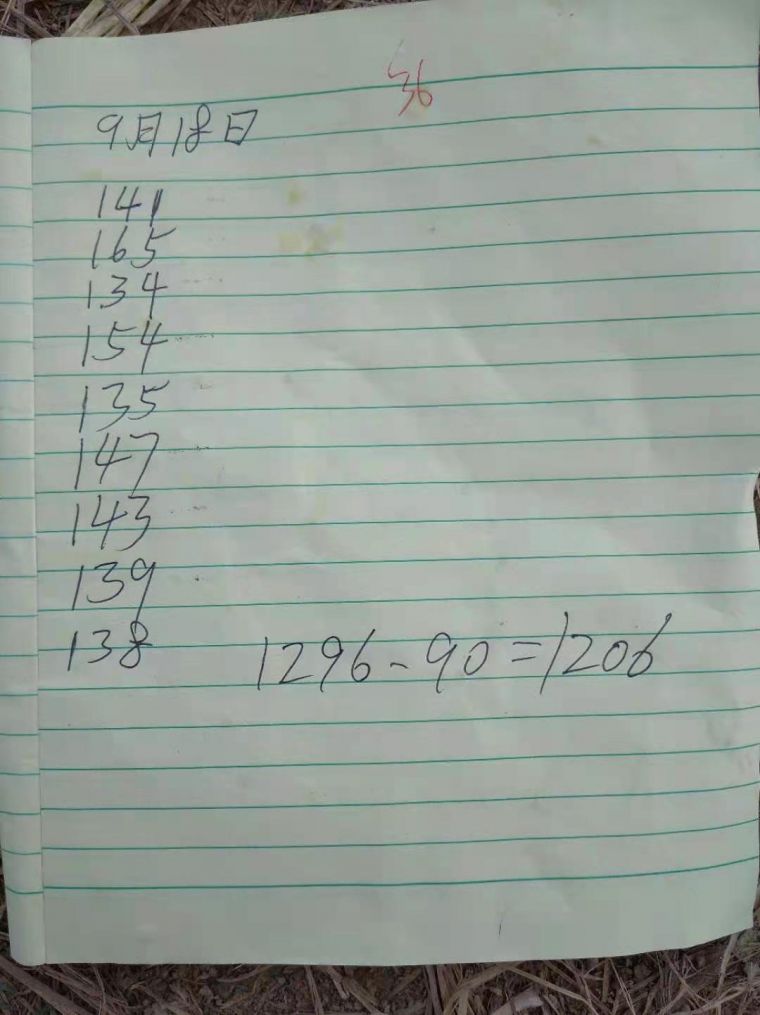 36
9月18日
141
165
134
154
135
147
143
139
138
1296-90=1206